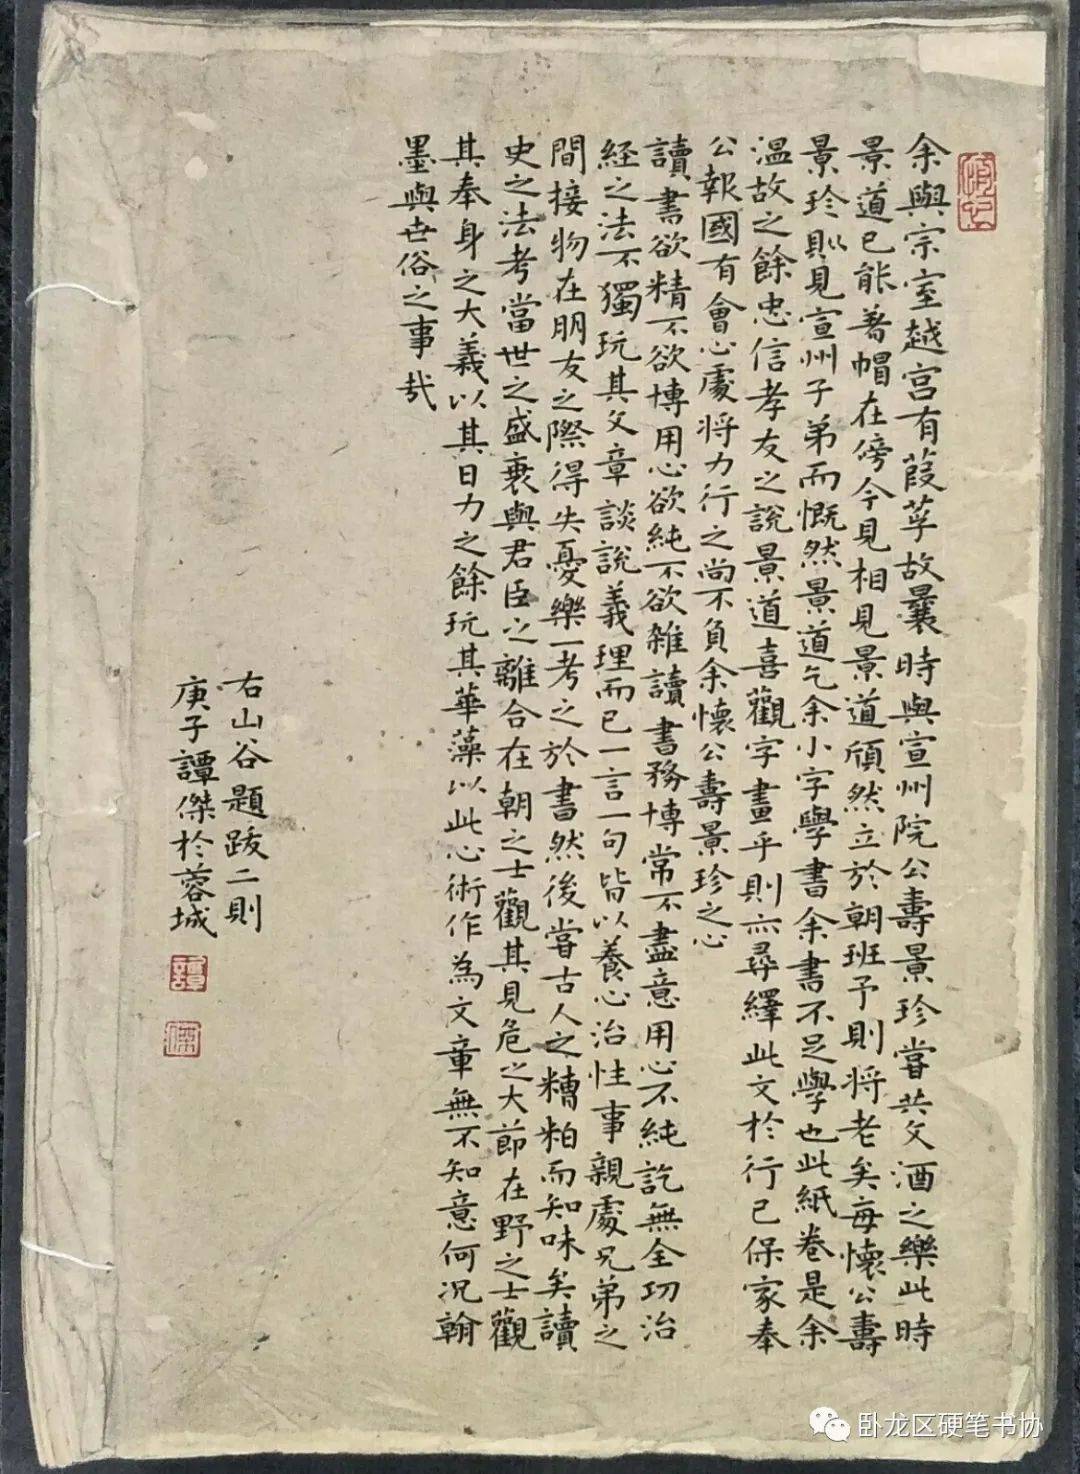 余與宗室越宫有葭莩故曩時與宣州院公壽景珍嘗共文酒之樂此時
景道已能著帽在傍今見相見景道頎然立於朝班予則将老矣每懷公壽
景珍則見宣州子弟而慨然景道乞余小字學書余書不足學也此紙卷是余
温故之餘忠信孝友之說景道喜觀字畫乎則亦尋繹此文於行己保家奉
公報國有會心處将力行之尚不負余懷公壽景珍之心
讀書欲精不欲博用心欲純不欲雜讀書務博常不盡意用心不純訖無全功治
経之法不獨玩其文章談說義理而已一言一句皆以養心治性事親處兄弟之
間接物在朋友之際得失憂樂一考之於書然後嘗古人之糟粕而知味矣讀
史之法考當世之盛衰與君臣之離合在朝之士觀其見危之大節在野之士觀
其奉身之大義以其日力之餘玩其華藻以此心術作為文章無不知意何况翰
墨與世俗之事哉
右山谷題跋二則
庚子譚傑於蓉城
卧龙区硬笔书协